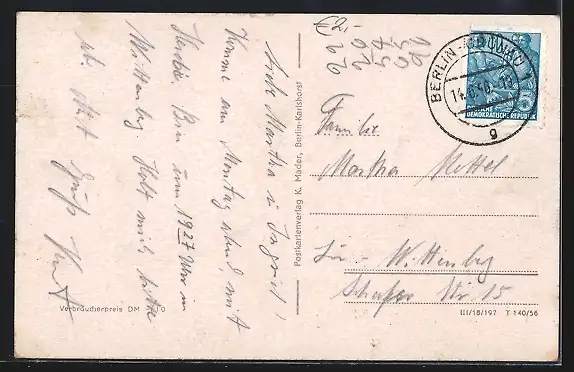 €2,-
Liebe Martha u. Ingrid!
Komme am Montag abend, mit
Bin um 19 27 Uhr in
Wittenberg Holt mich bitte
ab. Mit Gruß Kurt
Verbraucherpreis DM
Postkartenverlag K. Mader, Berlin-Karlshorst
BERLIN
14.
g
DEMOKRATISCHE REPUBLIK
Familie
Martha Kettel
Wittenberg
Str. 15
III/18/197 Y 140/56